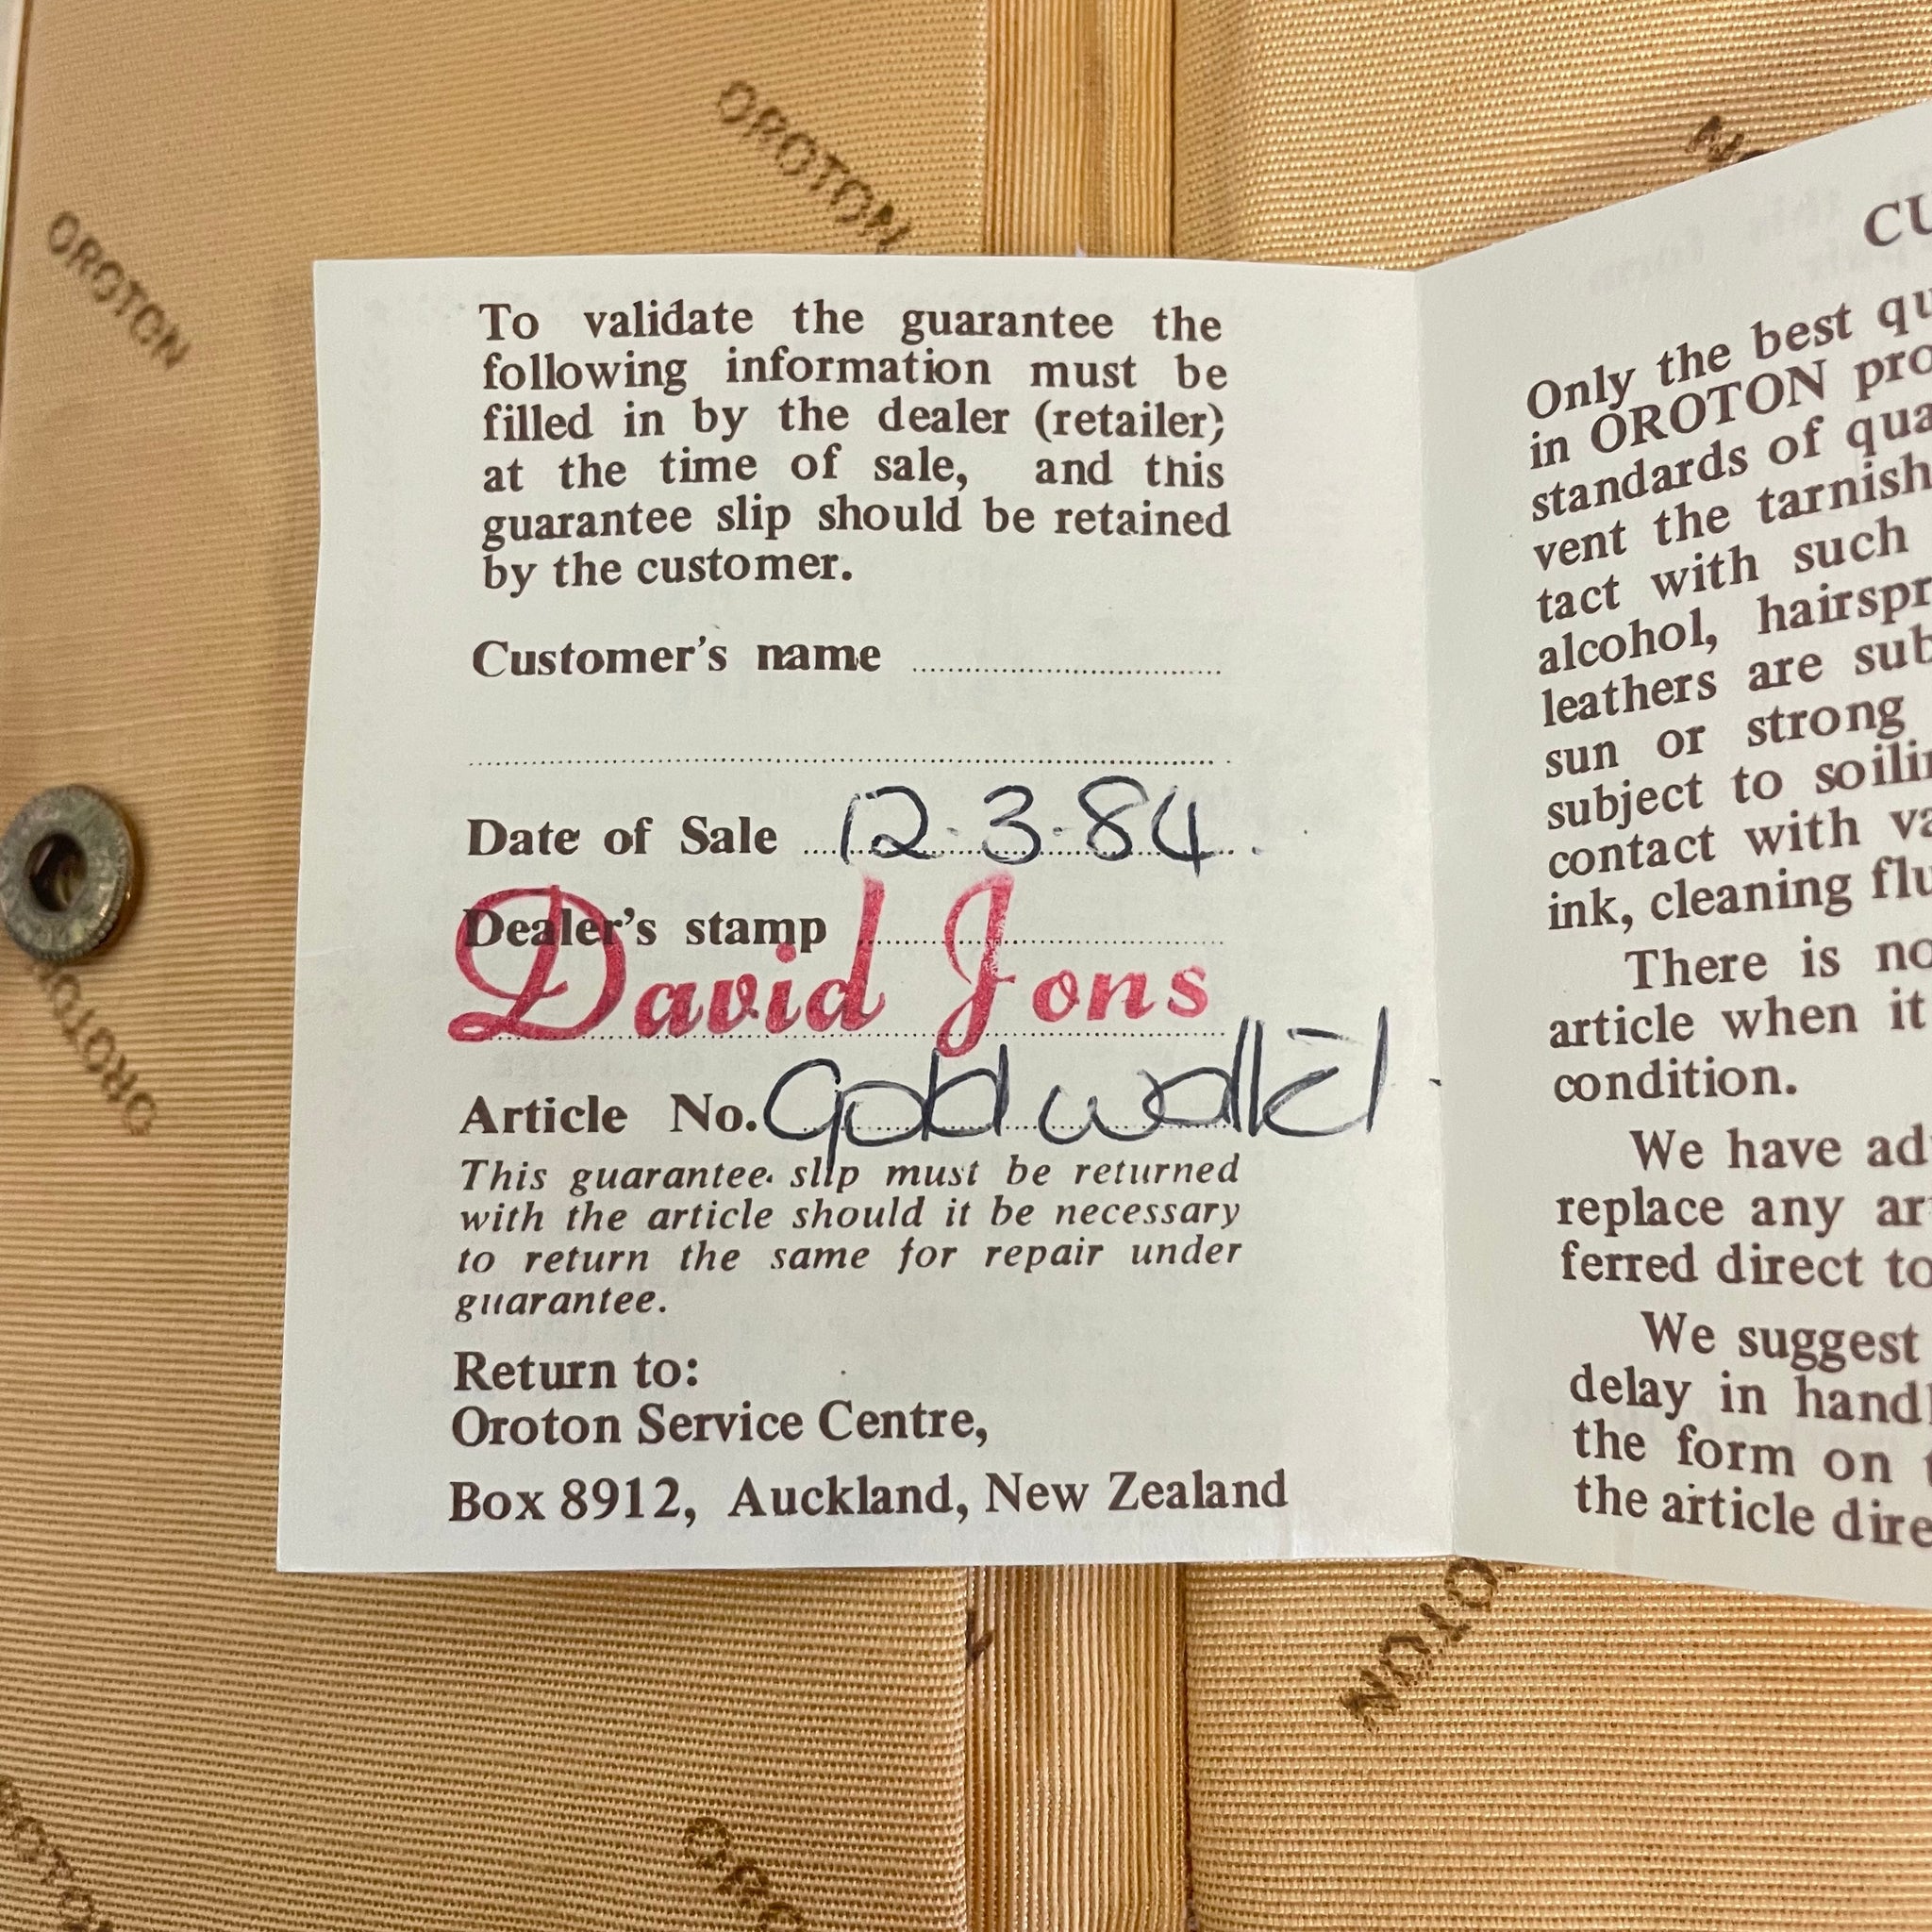 OROTON
OROTON
To validate the guarantee the
following information must be
filled in by the dealer (retailer)
at the time of sale, and this
guarantee slip should be retained
by the customer.
Customer's name
Date of Sale 12.3.84
Dealer's stamp
David Jons
Article No. Gold wallet
This guarantee slip must be returned
with the article should it be necessary
to return the same for repair under
guarantee.
Return to:
Oroton Service Centre,
Box 8912, Auckland, New Zealand
Only the best
in OROTON
standards of
vent the
tact with such
alcohol,
leathers are
sun or strong
subject to
contact with
ink, cleaning
There is
article when it
condition.
We have
replace any
ferred direct to
We suggest
delay in
the form on
the article
OROTON